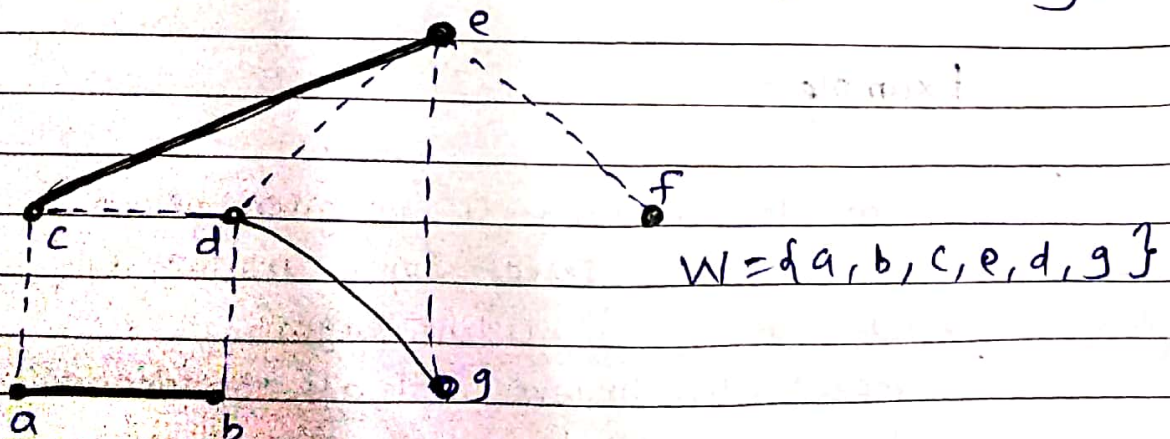 e
f
c
d
W={a, b, c, e, d, g}
g
a
b